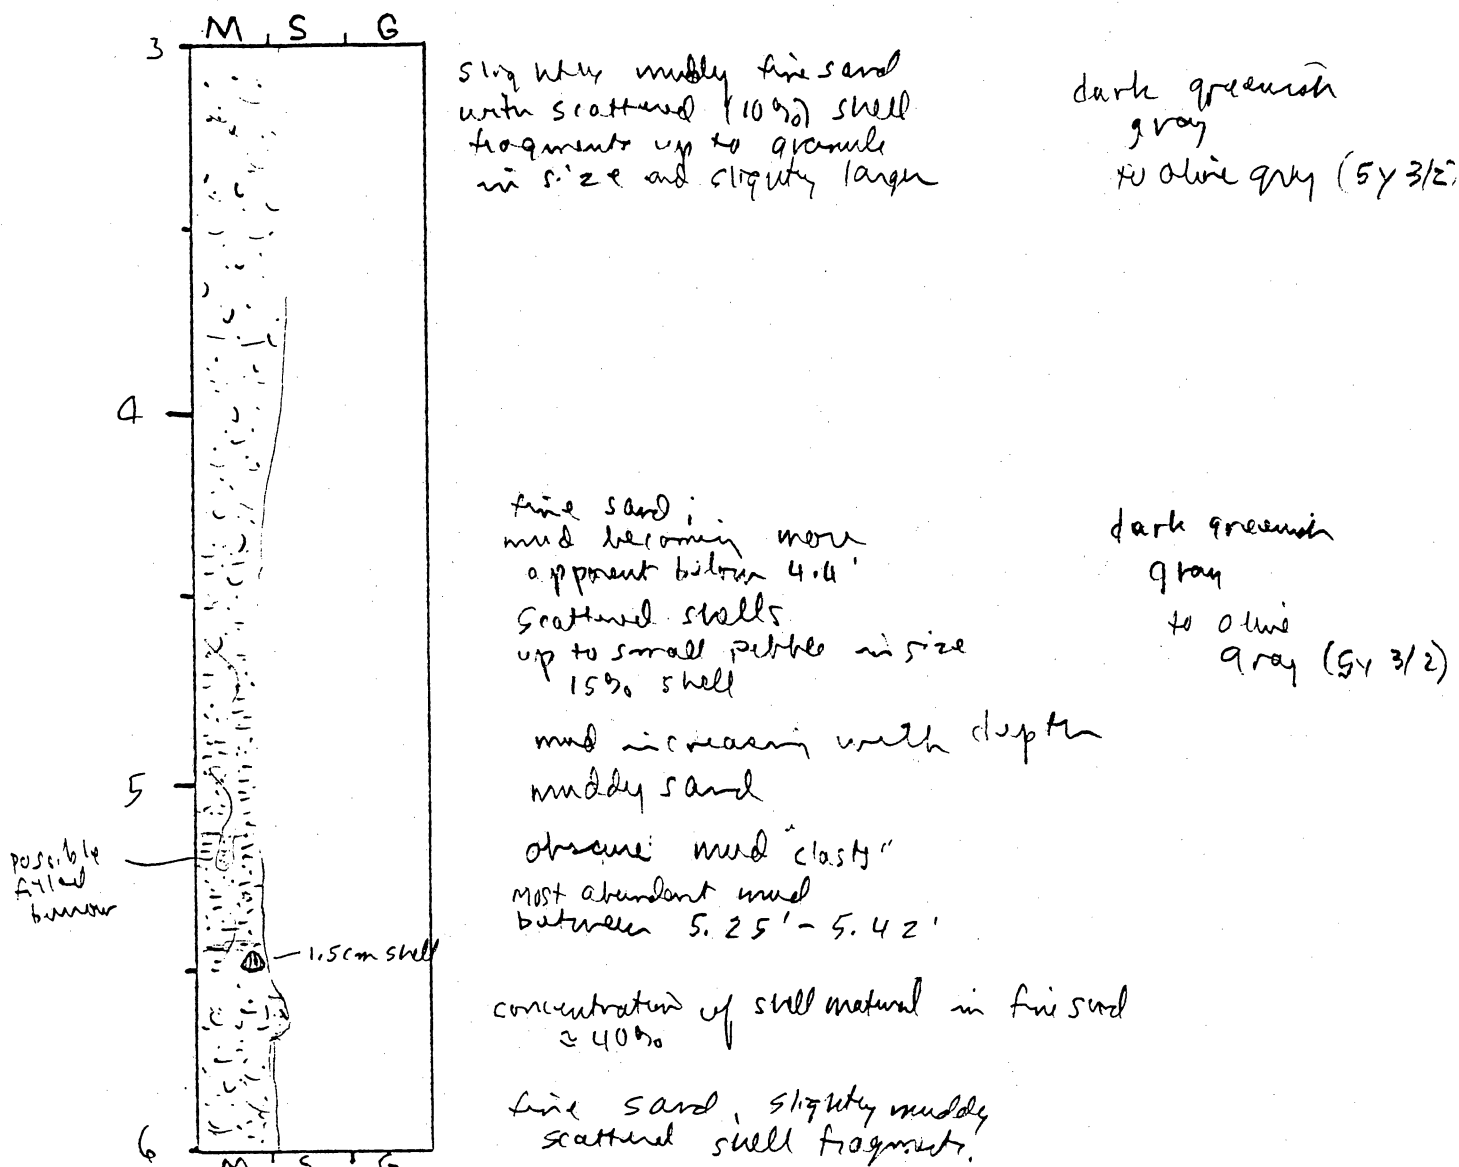 M S G
3
slightly muddy fine sand
with scattered (10%) shell
fragments up to granule
in size and slightly larger
dark greenish
gray
to olive gray (5Y 3/2)
4
fine sand;
mud becoming more
apparent below 4.4'
Scattered shells
up to small pebble in size
15% shell
dark greenish
gray
to olive
gray (5Y 3/2)
mud increasing with depth
5
muddy sand
possible
filled
burrow
obscure mud "clasts"
most abundant mud
between 5.25' - 5.42'
1.5cm shell
concentration of shell material in fine sand
≈ 40%
fine sand, slightly muddy
scattered shell fragments.
6
M S G